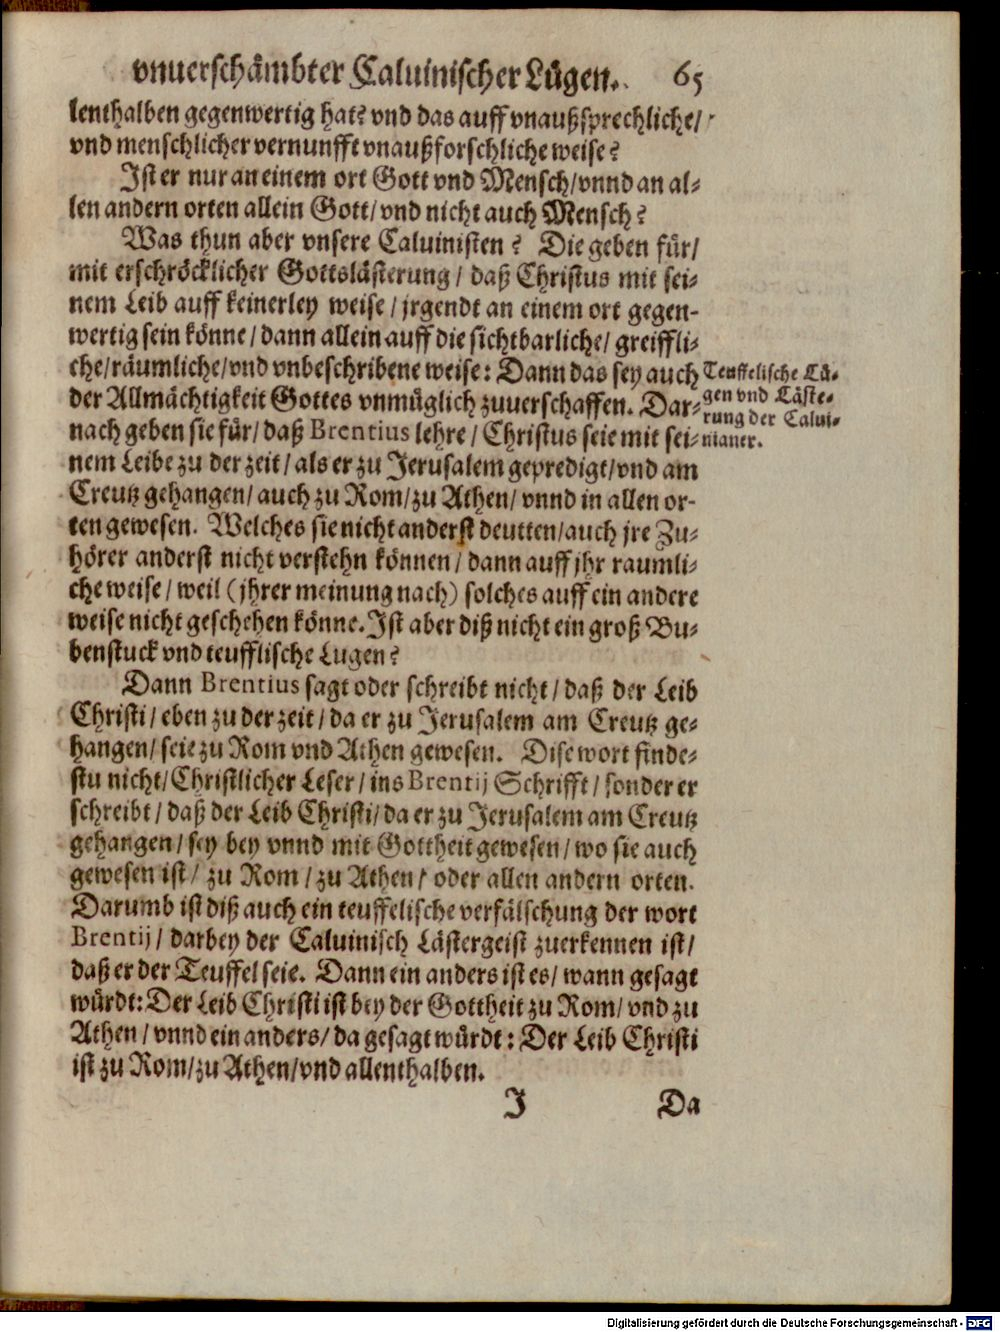 vnuerschämbter Caluinischer Lügen. 65
lenthalben gegenwertig hat? vnd das auff vnaußsprechliche/
vnd menschlicher vernunfft vnaußforschliche weise?
Ist er nur an einem ort Gott vnd Mensch/vnnd an al-
len andern orten allein Gott/vnd nicht auch Mensch?
Was thun aber vnsere Caluinisten? Die geben für/
mit erschröcklicher Gottslästerung/ daß Christus mit sei-
nem Leib auff keinerley weise/jrgendt an einem ort gegen-
wertig sein könne/dann allein auff die sichtbarliche/greiffli-
che/räumliche/vnd vnbeschribene weise: Dann das sey auch
der Allmächtigkeit Gottes vnmüglich zuuerschaffen. Dar-
nach geben sie für/daß Brentius lehre/Christus seie mit sei-
nem Leibe zu der zeit/als er zu Jerusalem gepredigt/vnd am
Creutz gehangen/auch zu Rom/zu Athen/vnnd in allen or-
ten gewesen. Welches sie nicht anderst deutten/auch jre Zu-
hörer anderst nicht verstehn können/dann auff jhr raumli-
che weise/weil (jhrer meinung nach) solches auff ein andere
weise nicht geschehen könne. Ist aber diß nicht ein groß Bu-
benstuck vnd teufflische Lugen?
Dann Brentius sagt oder schreibt nicht/daß der Leib
Christi/eben zu der zeit/da er zu Jerusalem am Creutz ge-
hangen/seie zu Rom vnd Athen gewesen. Dise wort finde-
stu nicht/Christlicher Leser/ins Brentij Schrifft/sonder er
schreibt/daß der Leib Christi/da er zu Jerusalem am Creutz
gehangen/sey bey vnnd mit Gottheit gewesen/wo sie auch
gewesen ist/zu Rom/zu Athen/oder allen andern orten.
Darumb ist diß auch ein teuffelische verfälschung der wort
Brentij/darbey der Caluinisch Lästergeist zuerkennen ist/
daß er der Teuffel seie. Dann ein anders ist es/wann gesagt
würdt: Der Leib Christi ist bey der Gottheit zu Rom/vnd zu
Athen/vnnd ein anders/da gesagt würdt: Der Leib Christi
ist zu Rom/zu Athen/vnd allenthalben.
J Da
Teuffelische Lü-
gen vnd Läste-
rung der Calui-
nianer.
Digitalisierung gefördert durch die Deutsche Forschungsgemeinschaft - DFG